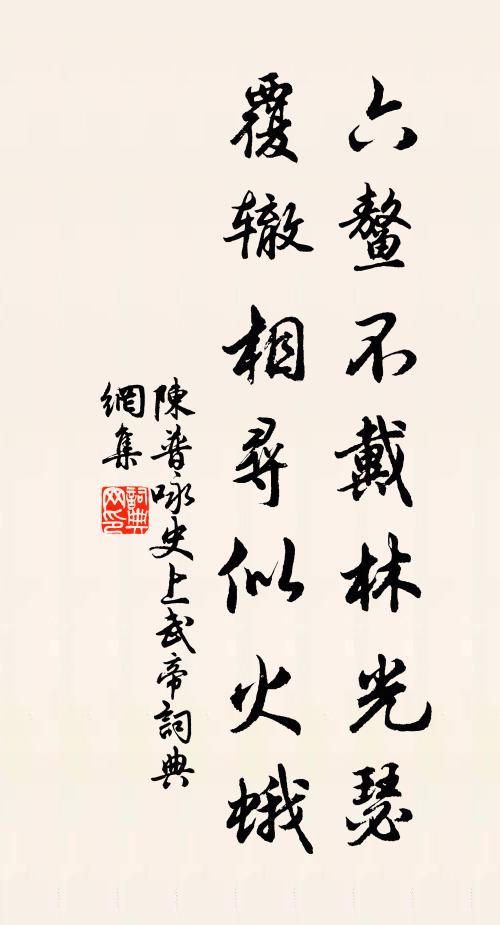 六鳌不戴林光瑟
覆辙相寻似火蛾
陳普咏史上武帝詞典
網集
詞典
网印